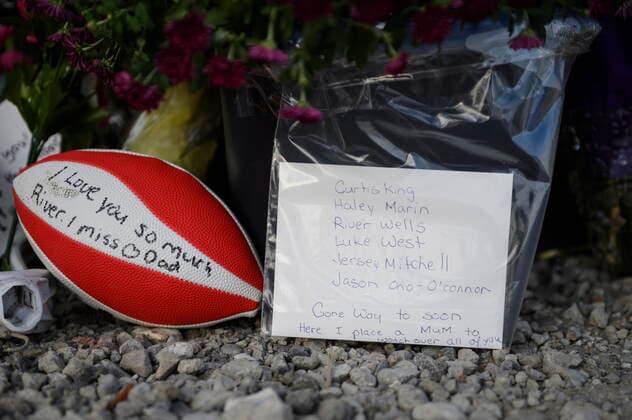 I Love you so much
River. I miss ♡ Dad
Curtis King
Haley Marin
River Wells
Luke West
Jersey Mitchell
Jason Ono-O'connor
Gone Way to soon
Here I place a MUM to
watch over all of you